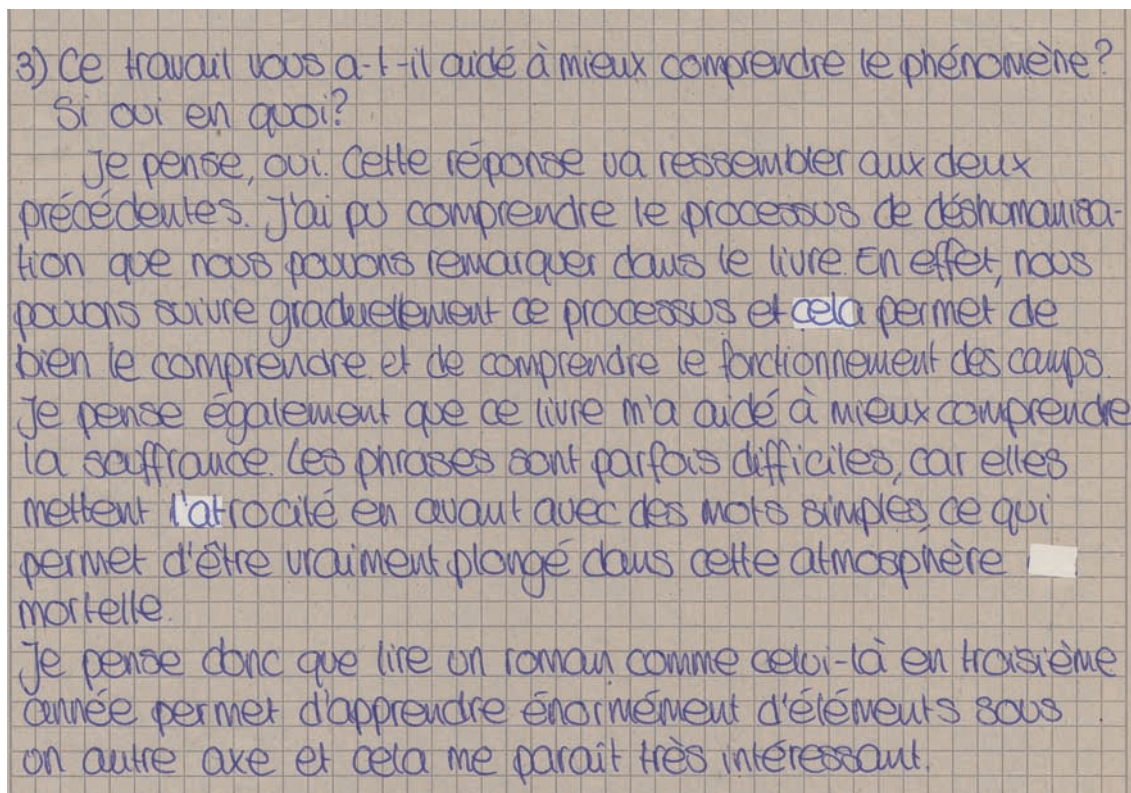 3) Ce travail vous a-t-il aidé à mieux comprendre le phénomène?
Si oui en quoi?
Je pense, oui. Cette réponse va ressembler aux deux
précédentes. J'ai pu comprendre le processus de déshumanisa-
tion que nous pouvons remarquer dans le livre. En effet, nous
pouvons suivre graduellement ce processus et cela permet de
bien le comprendre et de comprendre le fonctionnement des camps.
Je pense également que ce livre m'a aidé à mieux comprendre
la souffrance. Les phrases sont parfois difficiles, car elles
mettent l'atrocité en avant avec des mots simples, ce qui
permet d'être vraiment plongé dans cette atmosphère
mortelle.
Je pense donc que lire un roman comme celui-là en troisième
année permet d'apprendre énormément d'éléments sous
un autre axe et cela me paraît très intéressant.